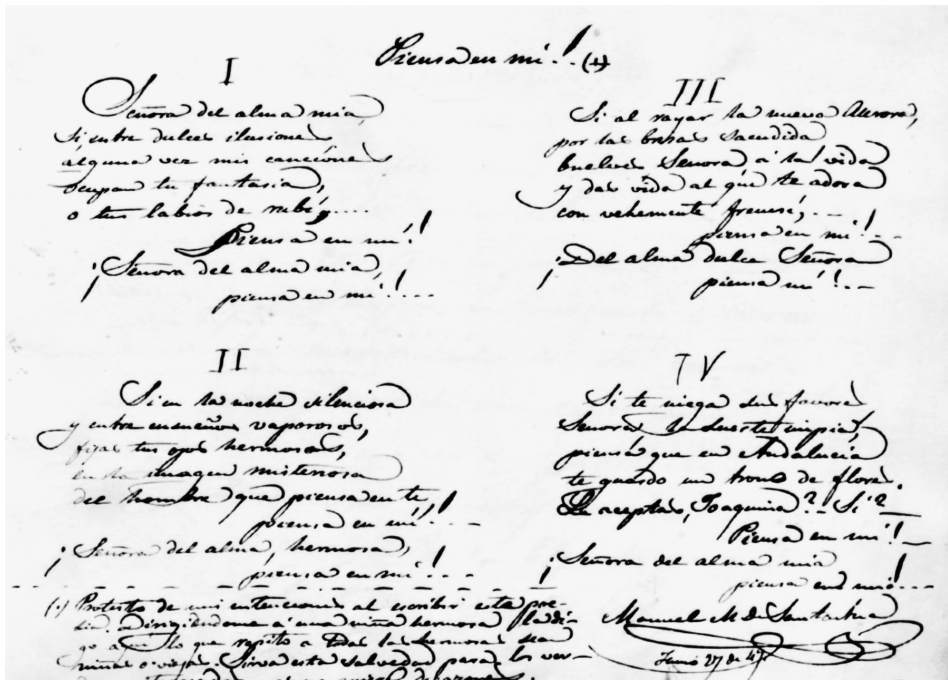 Piensa en mí!.. (1)
I
Señora del alma mia,
Si entre dulces ilusiones
alguna vez mis canciones
ocupan tu fantasía,
o tus labios de rubí,....
Piensa en mí!
¡Señora del alma mia,
piensa en mí!...
II
Si en la noche silenciosa
y entre ensueños vaporosos,
fijas tus ojos hermosos,
en la imagen misteriosa
del hombre que piensa en tí,
piensa en mí!...
¡Señora del alma, hermosa,
piensa en mi!...
(1) Protesto de mis intenciones al escribir esta poe-
sia. Dirigiéndome á una niña hermosa la di-
go aquello que repito a todas las hermosas sean
niñas o viejas. Sirva esta salvedad para los ver-
III
Si al rayar la nueva Aurora,
por las brisas sacudida
buelves Señora á la vida
y das vida al que te adora
con vehemente frenesí,...
piensa en mi!...
¡Del alma dulce Señora
piensa mí!...
IV
Si te niega sus favores
Señora la suerte impia,
piensa que en Andalucía
te guardo un trono de flores.
Le aceptas, Joaquina? - Si?
Piensa en mí!
¡Señora del alma mia
piensa en mi!...
Manuel M. de Santa Ana
Junio 27 de 47